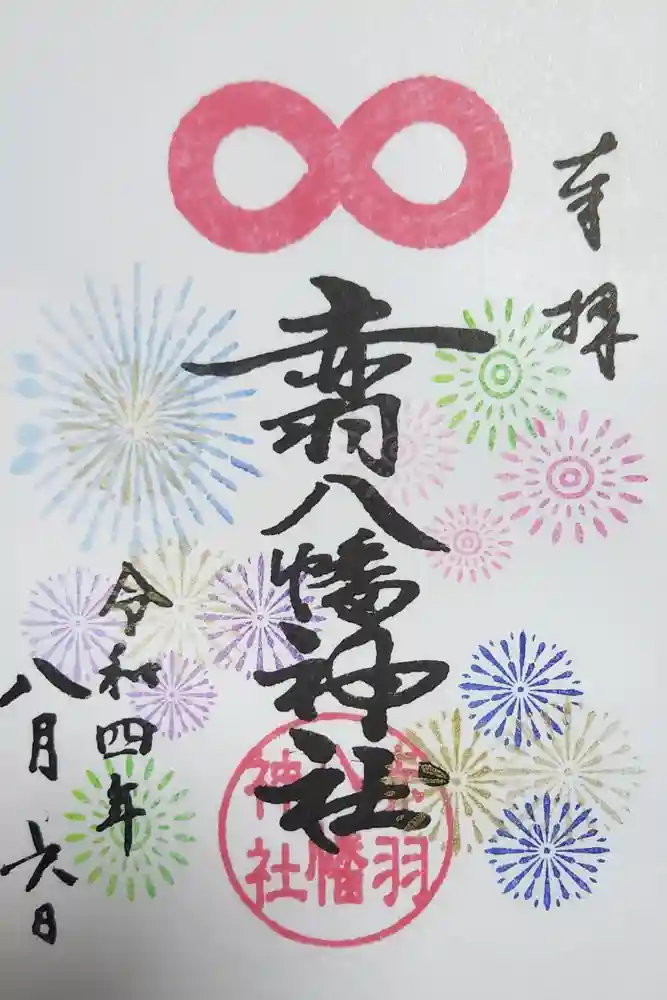 奉拝
赤羽八幡神社
令和四年
八月六日
赤羽
八幡
神社